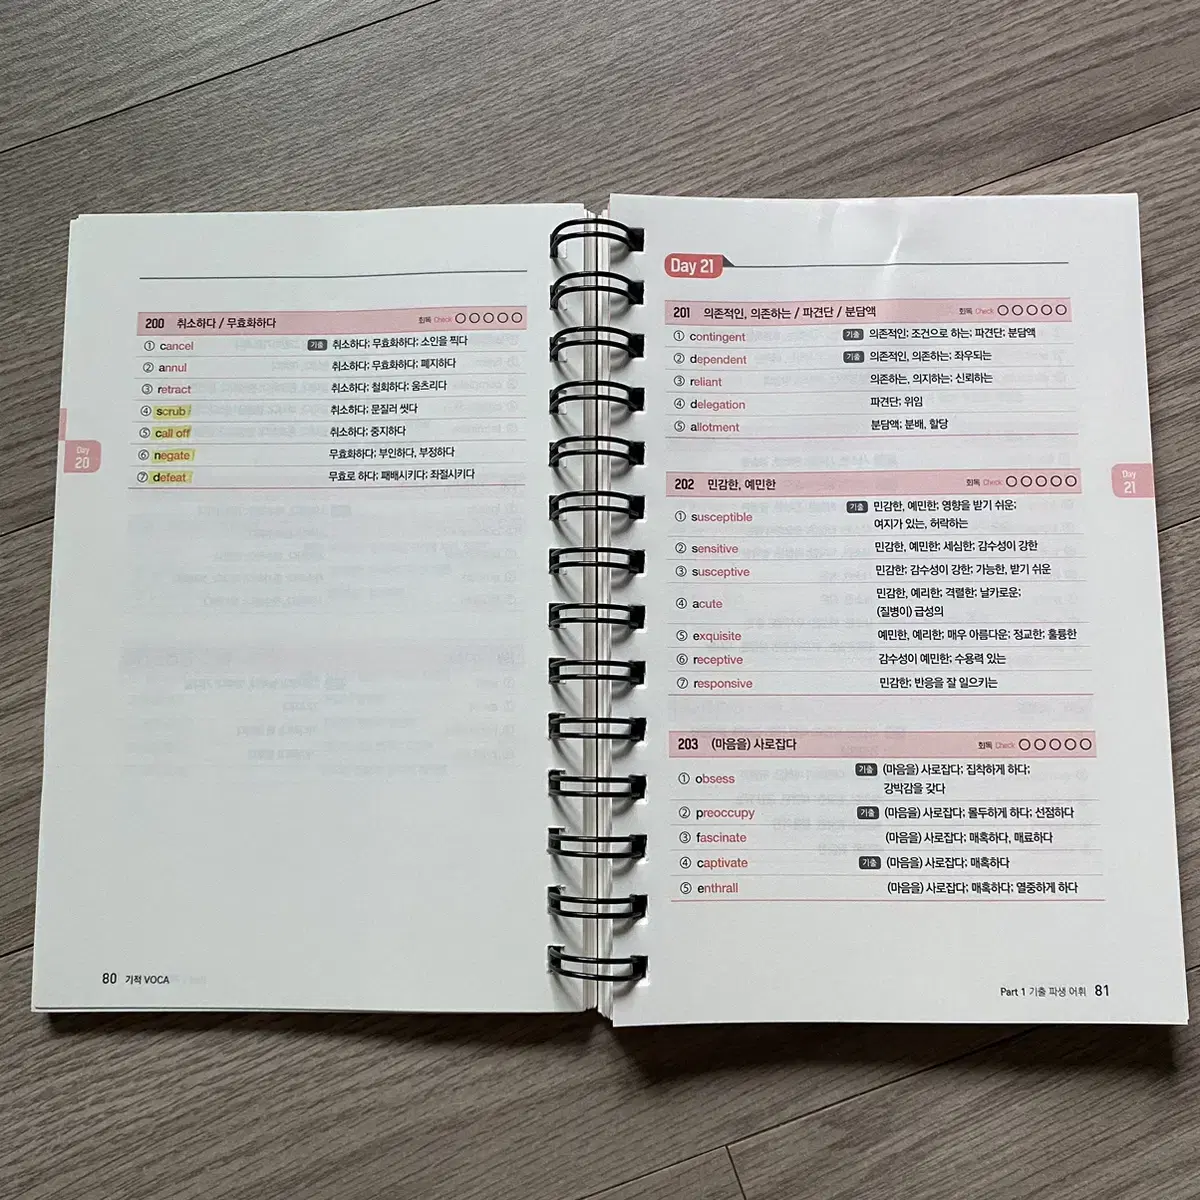 200 취소하다 / 무효화하다 회독 Check
① cancel 기출 취소하다; 무효화하다; 소인을 찍다
② annul 취소하다; 무효화하다; 폐지하다
③ retract 취소하다; 철회하다; 움츠리다
④ scrub 취소하다; 문질러 씻다
⑤ call off 취소하다; 중지하다
⑥ negate 무효화하다; 부인하다, 부정하다
⑦ defeat 무효로 하다; 패배시키다; 좌절시키다
Day
20
80 기적 VOCA
Day 21
201 의존적인, 의존하는 / 파견단 / 분담액 회독 Check
① contingent 기출 의존적인; 조건으로 하는; 파견단; 분담액
② dependent 기출 의존적인, 의존하는; 좌우되는
③ reliant 의존하는, 의지하는; 신뢰하는
④ delegation 파견단; 위임
⑤ allotment 분담액; 분배, 할당
202 민감한, 예민한 회독 Check
① susceptible 기출 민감한, 예민한; 영향을 받기 쉬운;
여지가 있는, 허락하는
② sensitive 민감한, 예민한; 세심한; 감수성이 강한
③ susceptive 민감한; 감수성이 강한; 가능한, 받기 쉬운
④ acute 민감한, 예리한; 격렬한; 날카로운;
(질병이) 급성의
⑤ exquisite 예민한, 예리한; 매우 아름다운; 정교한; 훌륭한
⑥ receptive 감수성이 예민한; 수용력 있는
⑦ responsive 민감한; 반응을 잘 일으키는
203 (마음을) 사로잡다 회독 Check
① obsess 기출 (마음을) 사로잡다; 집착하게 하다;
강박감을 갖다
② preoccupy 기출 (마음을) 사로잡다; 몰두하게 하다; 선점하다
③ fascinate (마음을) 사로잡다; 매혹하다, 매료하다
④ captivate 기출 (마음을) 사로잡다; 매혹하다
⑤ enthrall (마음을) 사로잡다; 매혹하다; 열중하게 하다
Day
21
Part 1 기출 파생 어휘 81